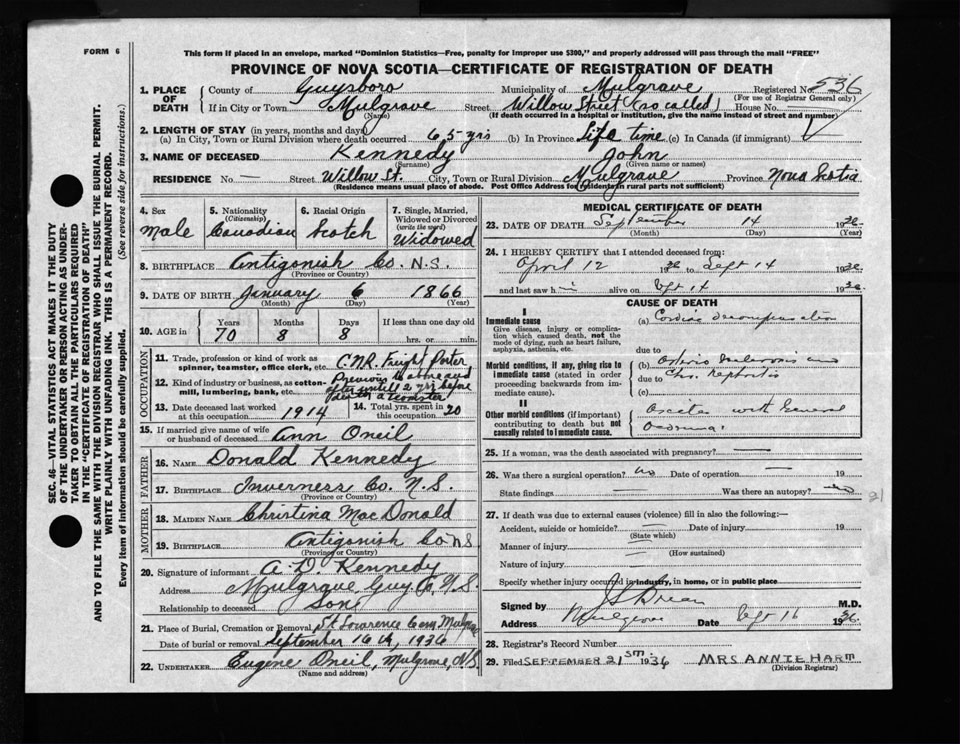 FORM 6
This form if placed in an envelope, marked "Dominion Statistics—Free, penalty for improper use $300," and properly addressed will pass through the mail "FREE"
PROVINCE OF NOVA SCOTIA—CERTIFICATE OF REGISTRATION OF DEATH
1. PLACE OF DEATH
County of Guysboro Municipality of Mulgrave Registered No. 536
(For use of Registrar General only)
If in City or Town Mulgrave Street Willow Street (so called) House No. —
(Name) (If death occurred in a hospital or institution, give the name instead of street and number)
2. LENGTH OF STAY (in years, months and days)
(a) In City, Town or Rural Division where death occurred 65 yrs (b) In Province Life time (c) In Canada (if immigrant)
3. NAME OF DECEASED Kennedy John
(Surname) (Given name or names)
RESIDENCE No. — Street Willow St. City, Town or Rural Division Mulgrave Province Nova Scotia
(Residence means usual place of abode. Post Office Address for residents in rural parts not sufficient)
4. Sex Male
5. Nationality (Citizenship) Canadian
6. Racial Origin Scotch
7. Single, Married, Widowed or Divorced (write the word) Widowed
8. BIRTHPLACE Antigonish Co. N.S.
(Province or Country)
9. DATE OF BIRTH January 6 1866
(Month) (Day) (Year)
10. AGE in Years 70 Months 8 Days 8 If less than one day old
hrs. or min.
OCCUPATION
11. Trade, profession or kind of work as spinner, teamster, office clerk, etc. C.N.R. Freight Porter
12. Kind of industry or business, as cotton-mill, lumbering, bank, etc. Previous to above and after until 2 yrs before death a teamster
13. Date deceased last worked at this occupation 1914
14. Total yrs. spent in this occupation 20
15. If married give name of wife or husband of deceased Ann Oneil
FATHER
16. NAME Donald Kennedy
17. BIRTHPLACE Inverness Co. N.S.
(Province or Country)
MOTHER
18. MAIDEN NAME Christina MacDonald
19. BIRTHPLACE Antigonish Co N S
(Province or Country)
20. Signature of informant A. D. Kennedy
Address Mulgrave, Guy Co, N.S.
Relationship to deceased Son
21. Place of Burial, Cremation or Removal St Lawrence Cem Mulgrave
Date of burial or removal September 16th, 1936
22. UNDERTAKER Eugene Oneil, Mulgrave, N.S.
(Name and address)
MEDICAL CERTIFICATE OF DEATH
23. DATE OF DEATH September 14 1936
(Month) (Day) (Year)
24. I HEREBY CERTIFY that I attended deceased from:
April 12 1936 to Sept 14 1936
and last saw h im alive on Sept 14 1936
CAUSE OF DEATH
I
Immediate cause
Give disease, injury or complication which caused death, not the mode of dying, such as heart failure, asphyxia, asthenia, etc.
(a) Cardiac decompensation
due to
Morbid conditions, if any, giving rise to immediate cause (stated in order proceeding backwards from immediate cause).
(b) Arterio sclerosis and
due to Chr. nephritis
(c)
II
Other morbid conditions (if important) contributing to death but not causally related to immediate cause.
Ascites with General
Oedema
25. If a woman, was the death associated with pregnancy? —
26. Was there a surgical operation? no Date of operation — 19
State findings — Was there an autopsy? no
27. If death was due to external causes (violence) fill in also the following:—
Accident, suicide or homicide? — Date of injury — 19
(State which)
Manner of injury —
(How sustained)
Nature of injury —
Specify whether injury occurred in industry, in home, or in public place
Signed by M.D.
Address Mulgrave Date Sept 16 1936
28. Registrar's Record Number
29. Filed SEPTEMBER 21ST 1936 MRS ANNIE HART
(Division Registrar)
SEC. 46—VITAL STATISTICS ACT MAKES IT THE DUTY
OF THE UNDERTAKER OR PERSON ACTING AS UNDER-
TAKER TO OBTAIN ALL THE PARTICULARS REQUIRED
IN THE "CERTIFICATE OF REGISTRATION OF DEATH"
AND TO FILE THE SAME WITH THE DIVISION REGISTRAR WHO SHALL ISSUE THE BURIAL PERMIT.
WRITE PLAINLY WITH UNFADING INK. THIS IS A PERMANENT RECORD.
Every item of information should be carefully supplied. (See reverse side for instructions.)